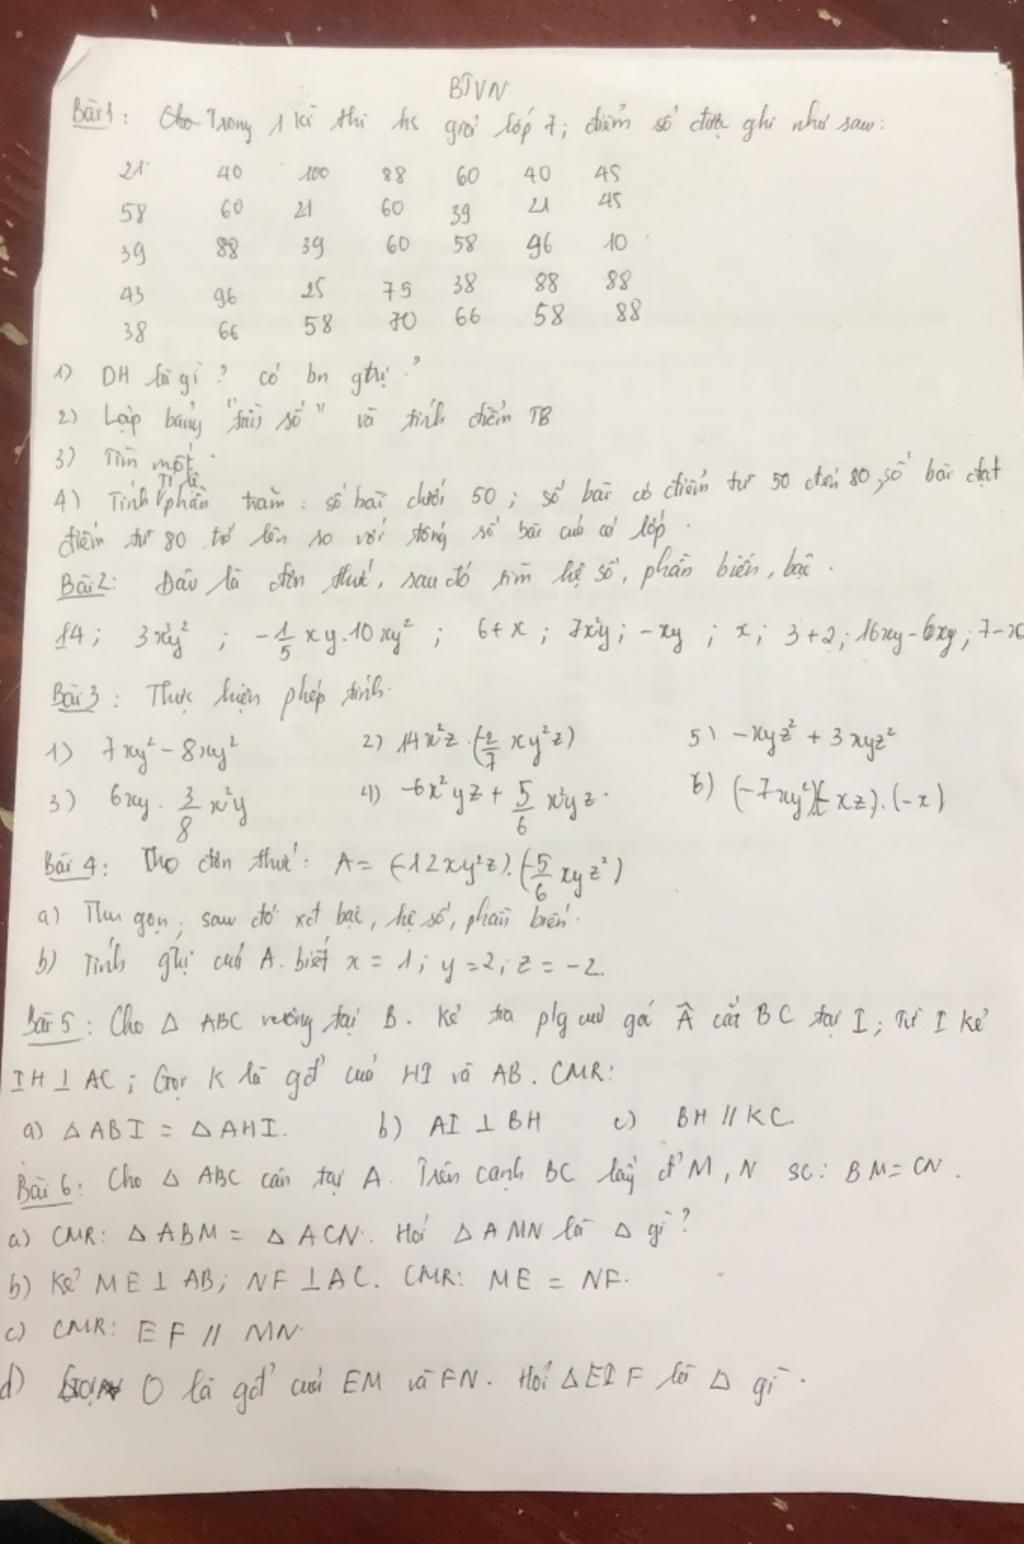 BTVN
Bài 1: Cho Trong 1 kì thi hs giỏi lớp 7; điểm số được ghi như sau:
21 40 100 88 60 40 45
58 60 21 60 39 21 45
39 88 39 60 58 96 10
43 96 25 75 38 88 88
38 66 58 70 66 58 88
1) DH là gì? có bn gtrị?
2) Lập bảng "tần số" và tính điểm TB
3) Tìm mốt.
4) Tính Tỉ lệ phần trăm: số bài dưới 50; số bài có điểm từ 50 đến 80; số bài đạt
điểm từ 80 trở lên so với tổng số bài của cả lớp.
Bài 2: Đâu là đơn thức, sau đó tìm hệ số, phần biến, bậc.
14; 3x²y²; -1/5 xy.10xy²; 6+x; 7x²y; -xy; x; 3+2; 16xy-6xy; 7-x
Bài 3: Thực hiện phép tính.
1) 7xy² - 8xy² 2) 14x²z.(2/7 xy²z) 5) -xyz² + 3xyz²
3) 6xy. 3/8 x²y 4) -6x²yz + 5/6 x²yz. 6) (-7xy²)(-xz).(-x)
Bài 4: Cho đơn thức: A = (-12xy²z).(-5/6 xyz²)
a) Thu gọn, sau đó xét bậc, hệ số, phần biến.
b) Tính gtrị của A. biết x = 1; y = 2; z = -2.
Bài 5: Cho Δ ABC vuông tại B. Kẻ tia p/g của góc Â cắt BC tại I; Từ I kẻ
IH ⊥ AC; Gọi K là gđ' của HI và AB. CMR:
a) Δ ABI = Δ AHI. b) AI ⊥ BH c) BH // KC.
Bài 6: Cho Δ ABC cân tại A. Trên cạnh BC lấy đ' M, N sc: BM = CN.
a) CMR: Δ ABM = Δ ACN. Hỏi Δ AMN là Δ gì?
b) Kẻ ME ⊥ AB; NF ⊥ AC. CMR: ME = NF.
c) CMR: EF // MN.
d) O là gđ' của EM và FN. Hỏi ΔEIF là Δ gì.